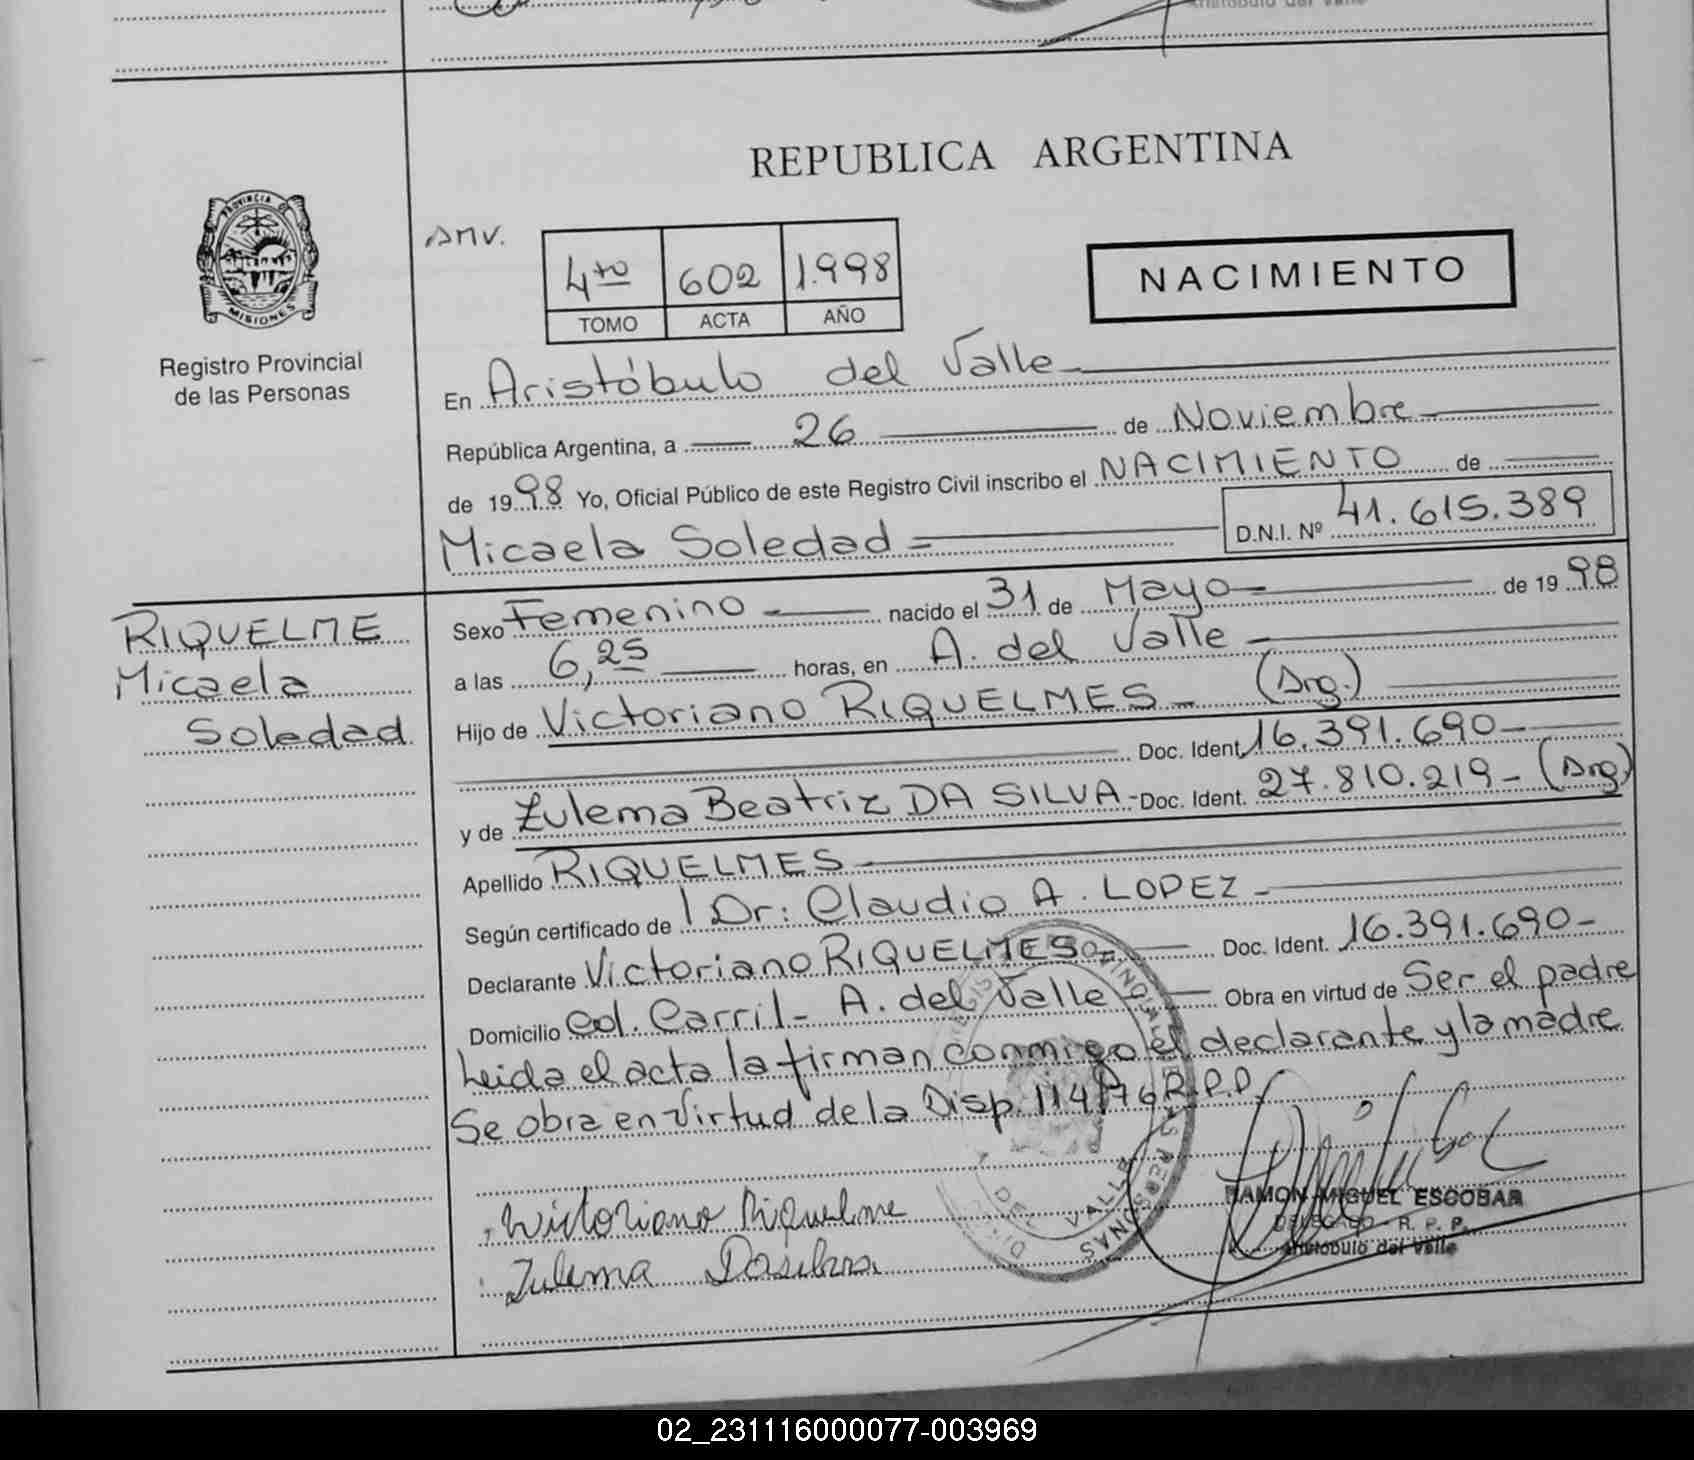 REPUBLICA ARGENTINA
PROVINCIA DE
MISIONES
Registro Provincial
de las Personas
AMV.
4to 602 1.998
TOMO ACTA AÑO
NACIMIENTO
En Aristóbulo del Valle
República Argentina, a 26 de Noviembre
de 1998 Yo, Oficial Público de este Registro Civil inscribo el NACIMIENTO de
Micaela Soledad D.N.I. Nº 41.615.389
RIQUELME
Micaela
Soledad
Sexo Femenino nacido el 31 de Mayo de 1998
a las 6,25 horas, en A. del Valle
Hijo de Victoriano RIQUELMES - (Arg.)
Doc. Ident. 16.391.690-
y de Zulema Beatriz DA SILVA - Doc. Ident. 27.810.219 - (Arg)
Apellido RIQUELMES
Según certificado de Dr: Claudio A. LOPEZ -
Declarante Victoriano RIQUELMES Doc. Ident. 16.391.690-
Domicilio Col. Carril - A. del Valle Obra en virtud de Ser el padre
Leida el acta la firman conmigo el declarante y la madre
Se obra en virtud de la Disp. 114/76 R.P.P.
Victoriano Riquelme
Zulema Dasilva
DEL VALLE
RAMON MIGUEL ESCOBAR
DELEGADO - R. P. P.
Aristóbulo del Valle
02_231116000077-003969